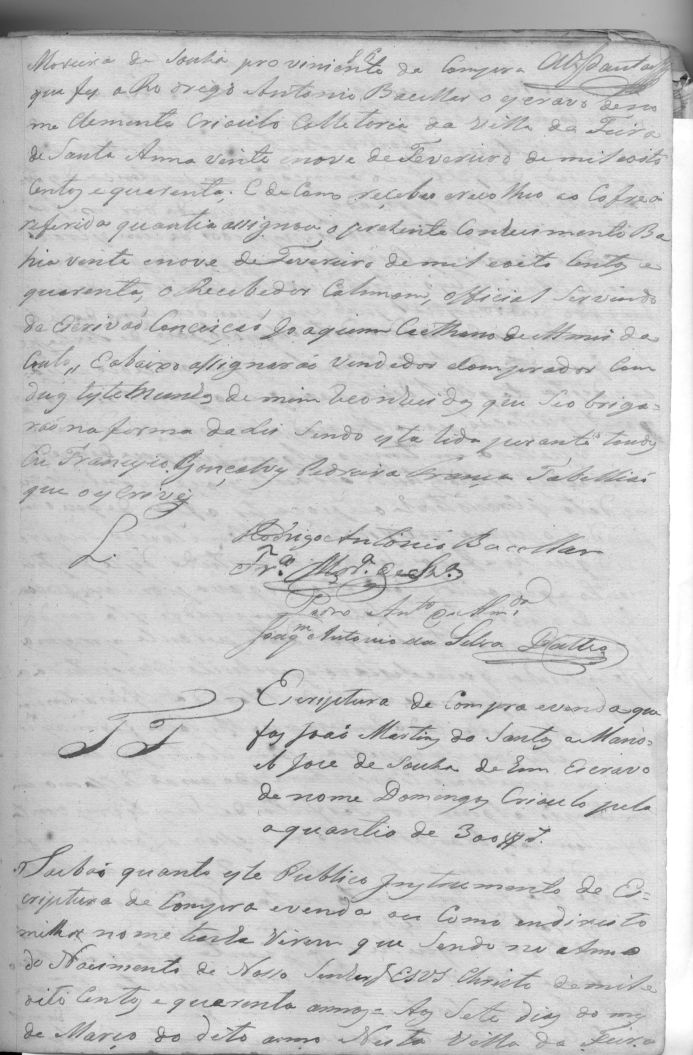 86
Moreira de Souza proviniente da Compra
que fez a Rodrigo Antonio Bacellar o escravo de no
me Clemente Crioulo Colletoria da Villa da Feira
de Santa Anna vinte e nove de Fevereiro de mil e oito
Centos e quarenta. E de Como recebeo e recolheo ao Cofre a
referida quantia assignou o prezente Conhecimento Ba
hia vente e nove de Fevereiro de mil e oeto Centos e
quarenta, o Recebedor Calmom, official Servindo
de Escrivaõ Conceiçaõ Joaquim Caethano de
E abaixo assignaraõ Vendedor e Comprador Com
duas testemunhas de mim reconhecidas que Se obriga-
raõ na forma da Lei Sendo esta lida perante todos
Eu Francisco Gonçalves Pedreira França Tabelliaõ
que o escrivy
Rodrigo Antônio Bacellar
Fr.co Mor.a de Sz.a
Pedro Ant.o de Alm.da
Joaq.m Antonio da Silva
Escriptura de Compra e venda que
faz Joaõ Martins dos Santos a Mano-
el Joze de Souza de Um Escravo
de nome Domingos Crioulo pela
a quantia de 300$
Saibaõ quanto este Publico Instrumento de Es-
criptura de Compra e venda ou Como em direito
milhor nome tenha Virem que Sendo no Anno
do Nascimento de Nosso Senhor JESUS Christo de mil e
oito Centos e quarenta annos Aos Sete dias do mez
de Março do dito anno Nesta Villa da Feira